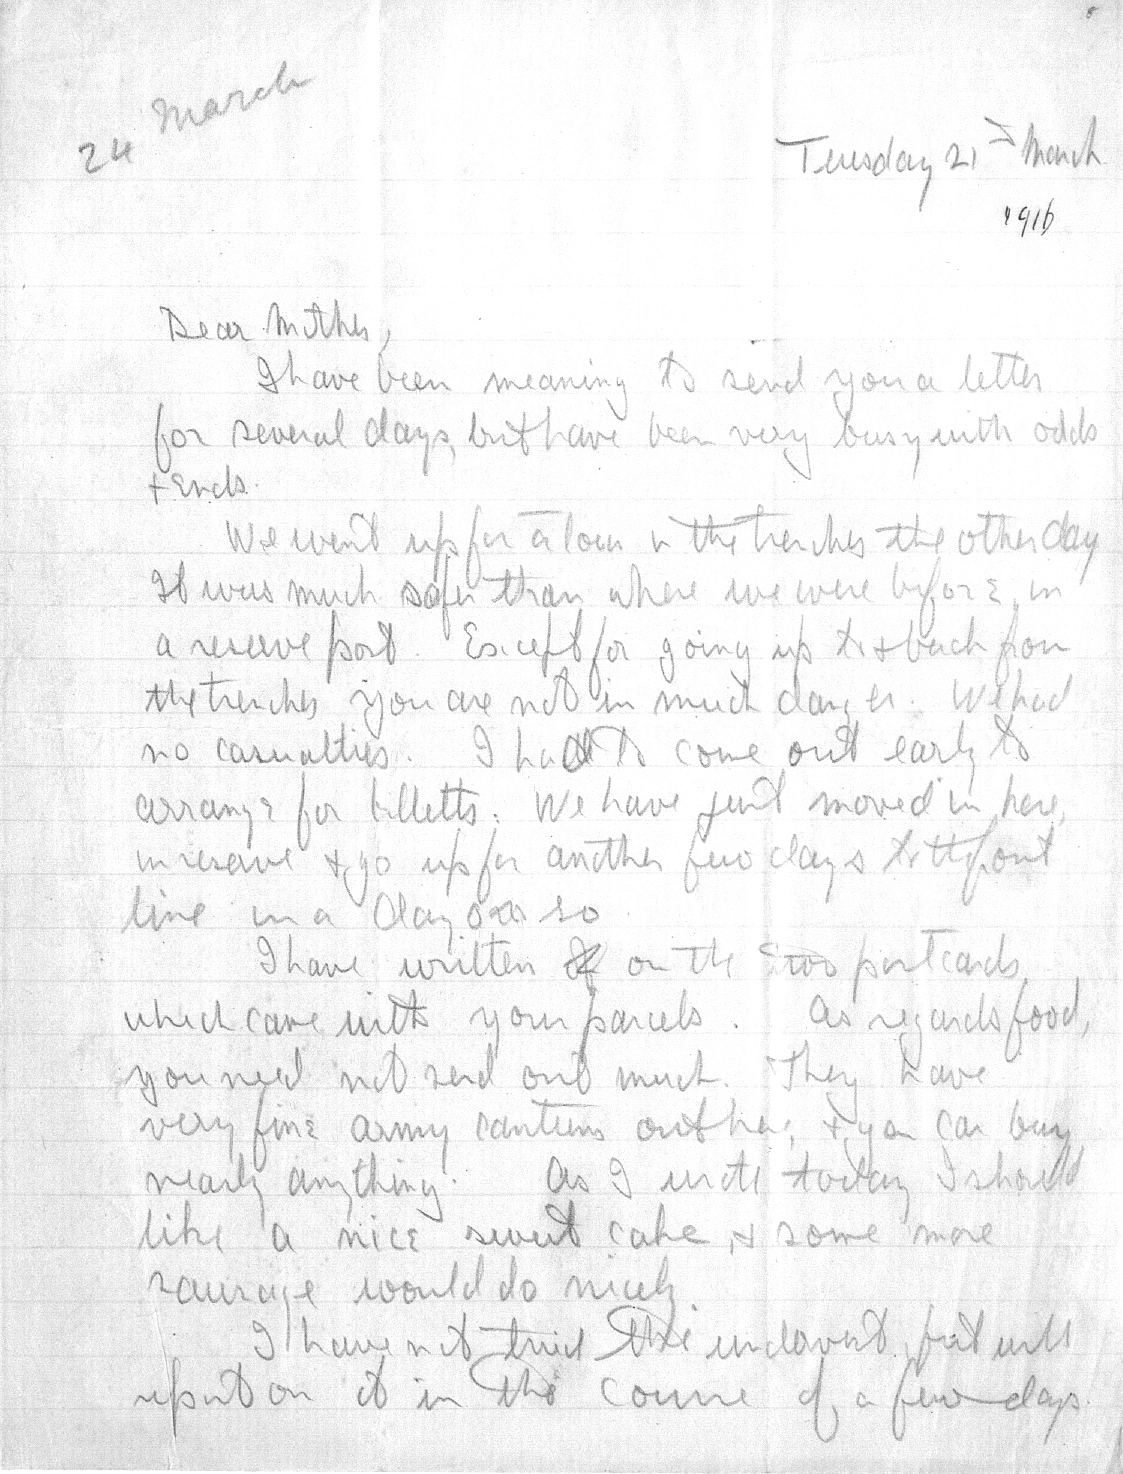 24 March
Tuesday 21st March
1916
Dear Mother,
I have been meaning to send you a letter
for several days, but have been very busy with odds
& Ends.
We went up for a tour in the trenches the other day
It was much safer than where we were before, in
a reserve post. Except for going up to & back from
the trenches you are not in much danger. We had
no casualties. I had to come out early to
arrange for billetts. We have just moved in here,
in reserve & go up for another few days to the front
line in a day or so
I have written on the two postcards
which came with your parcels. As regards food,
you need not send out much. They have
very fine army canteens out here, & you can buy
nearly anything. As I write today I should
like a nice sweet cake, & some more
sausage would do nicely.
I have not tried the but will
report on it in the course of a few days.